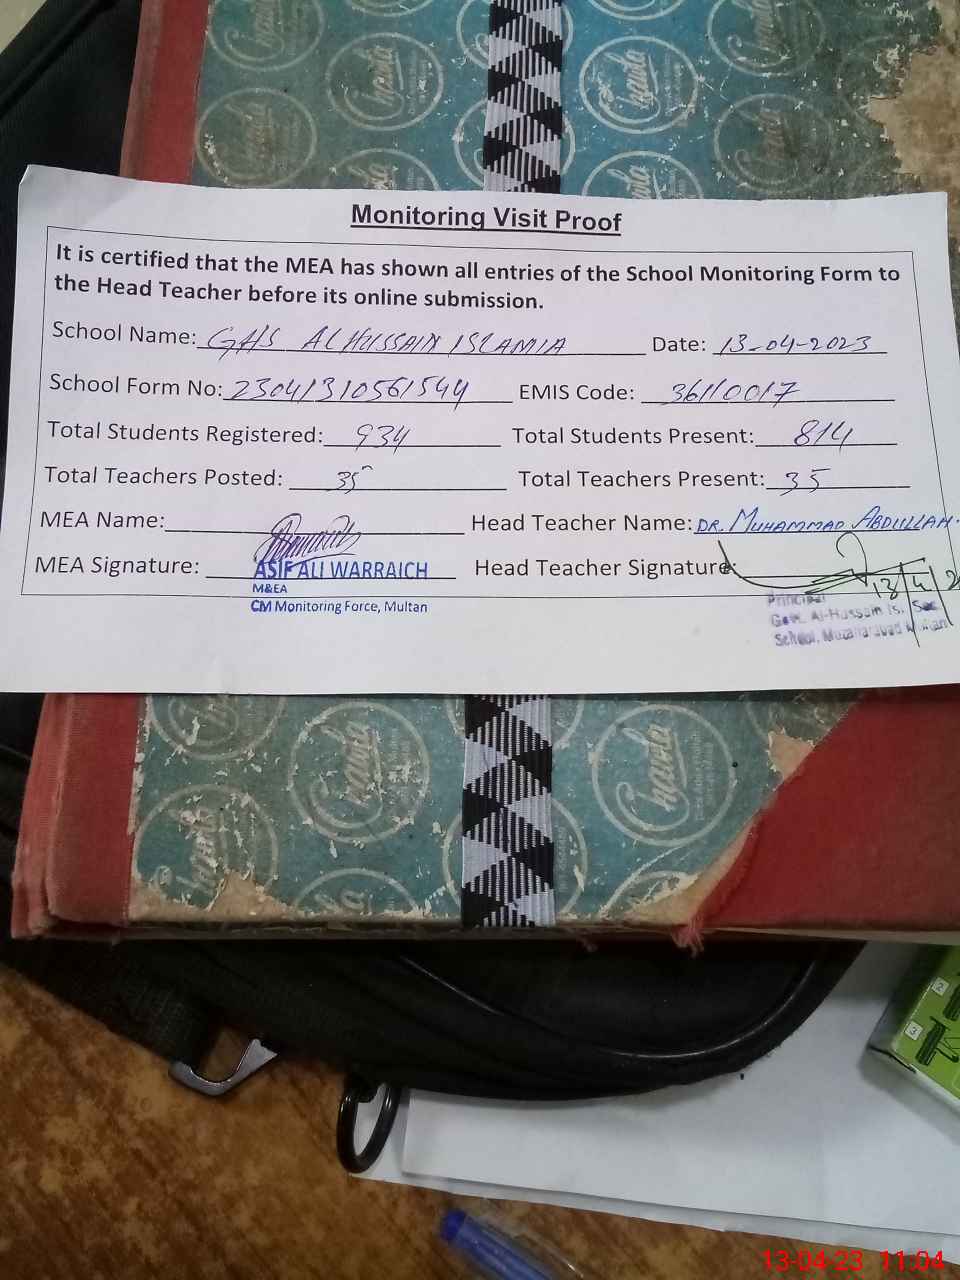 Chawla
Monitoring Visit Proof
It is certified that the MEA has shown all entries of the School Monitoring Form to
the Head Teacher before its online submission.
School Name: GHS AL HUSSAIN ISLAMIA Date: 13-04-2023
School Form No: 23041310561544 EMIS Code: 36110017
Total Students Registered: 934 Total Students Present: 814
Total Teachers Posted: 35 Total Teachers Present: 35
MEA Name: Head Teacher Name: DR. MUHAMMAD ABDULLAH.
MEA Signature: Head Teacher Signature:
ASIF ALI WARRAICH
M&EA
CM Monitoring Force, Multan
13/4/2
Principal
Govt. Al-Hussain Is. Sec.
School, Muzaffarabad Multan
Chawla
2
3
13-04-23 11:04